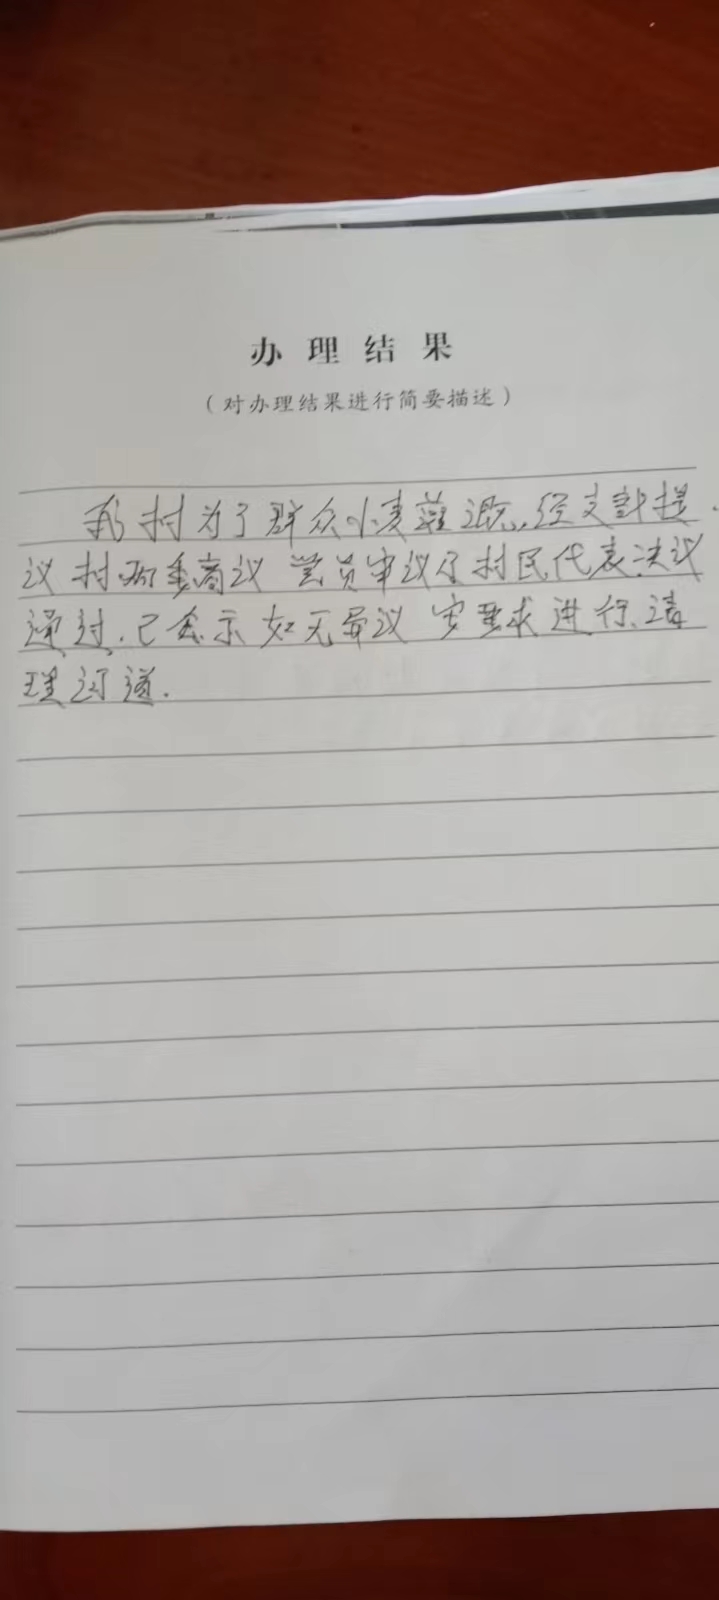 办理结果
（对办理结果进行简要描述）
我村为了群众小麦灌溉，经支部提
议村两委商议 党员审议及村民代表决议
通过，已公示如无异议 要求进行清
理河道．